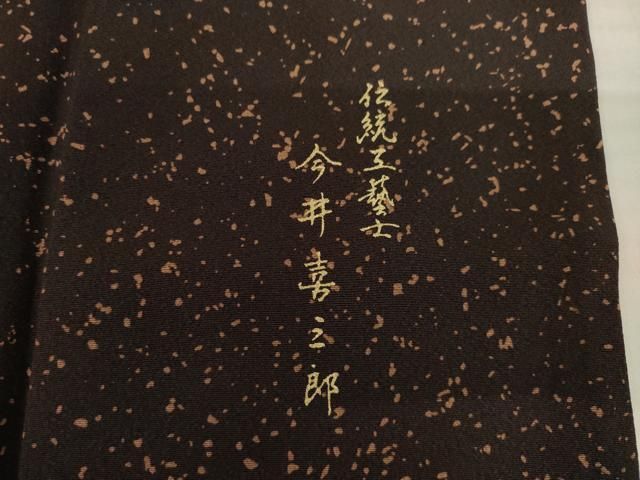 伝統工藝士
今井喜三郎